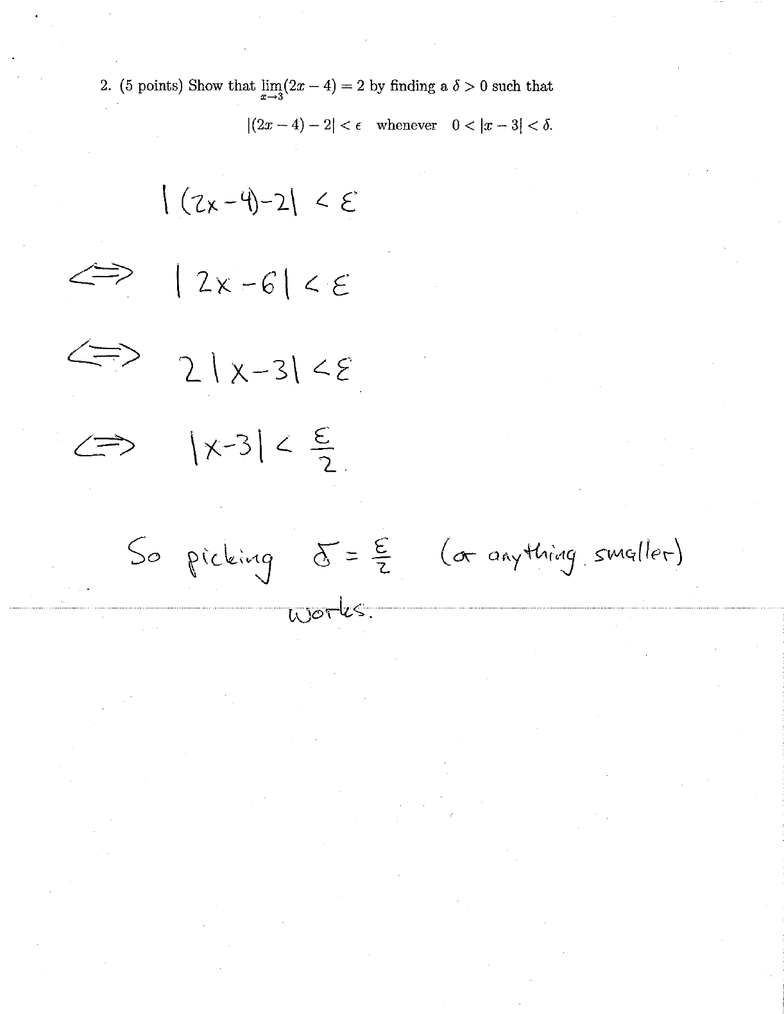 2. (5 points) Show that lim x→3 (2x − 4) = 2 by finding a δ > 0 such that
|(2x − 4) − 2| < ϵ whenever 0 < |x − 3| < δ.
|(2x-4)-2| < ε
⟺ |2x-6| < ε
⟺ 2|x-3| < ε
⟺ |x-3| < ε/2.
So picking δ = ε/2 (or anything smaller)
works.